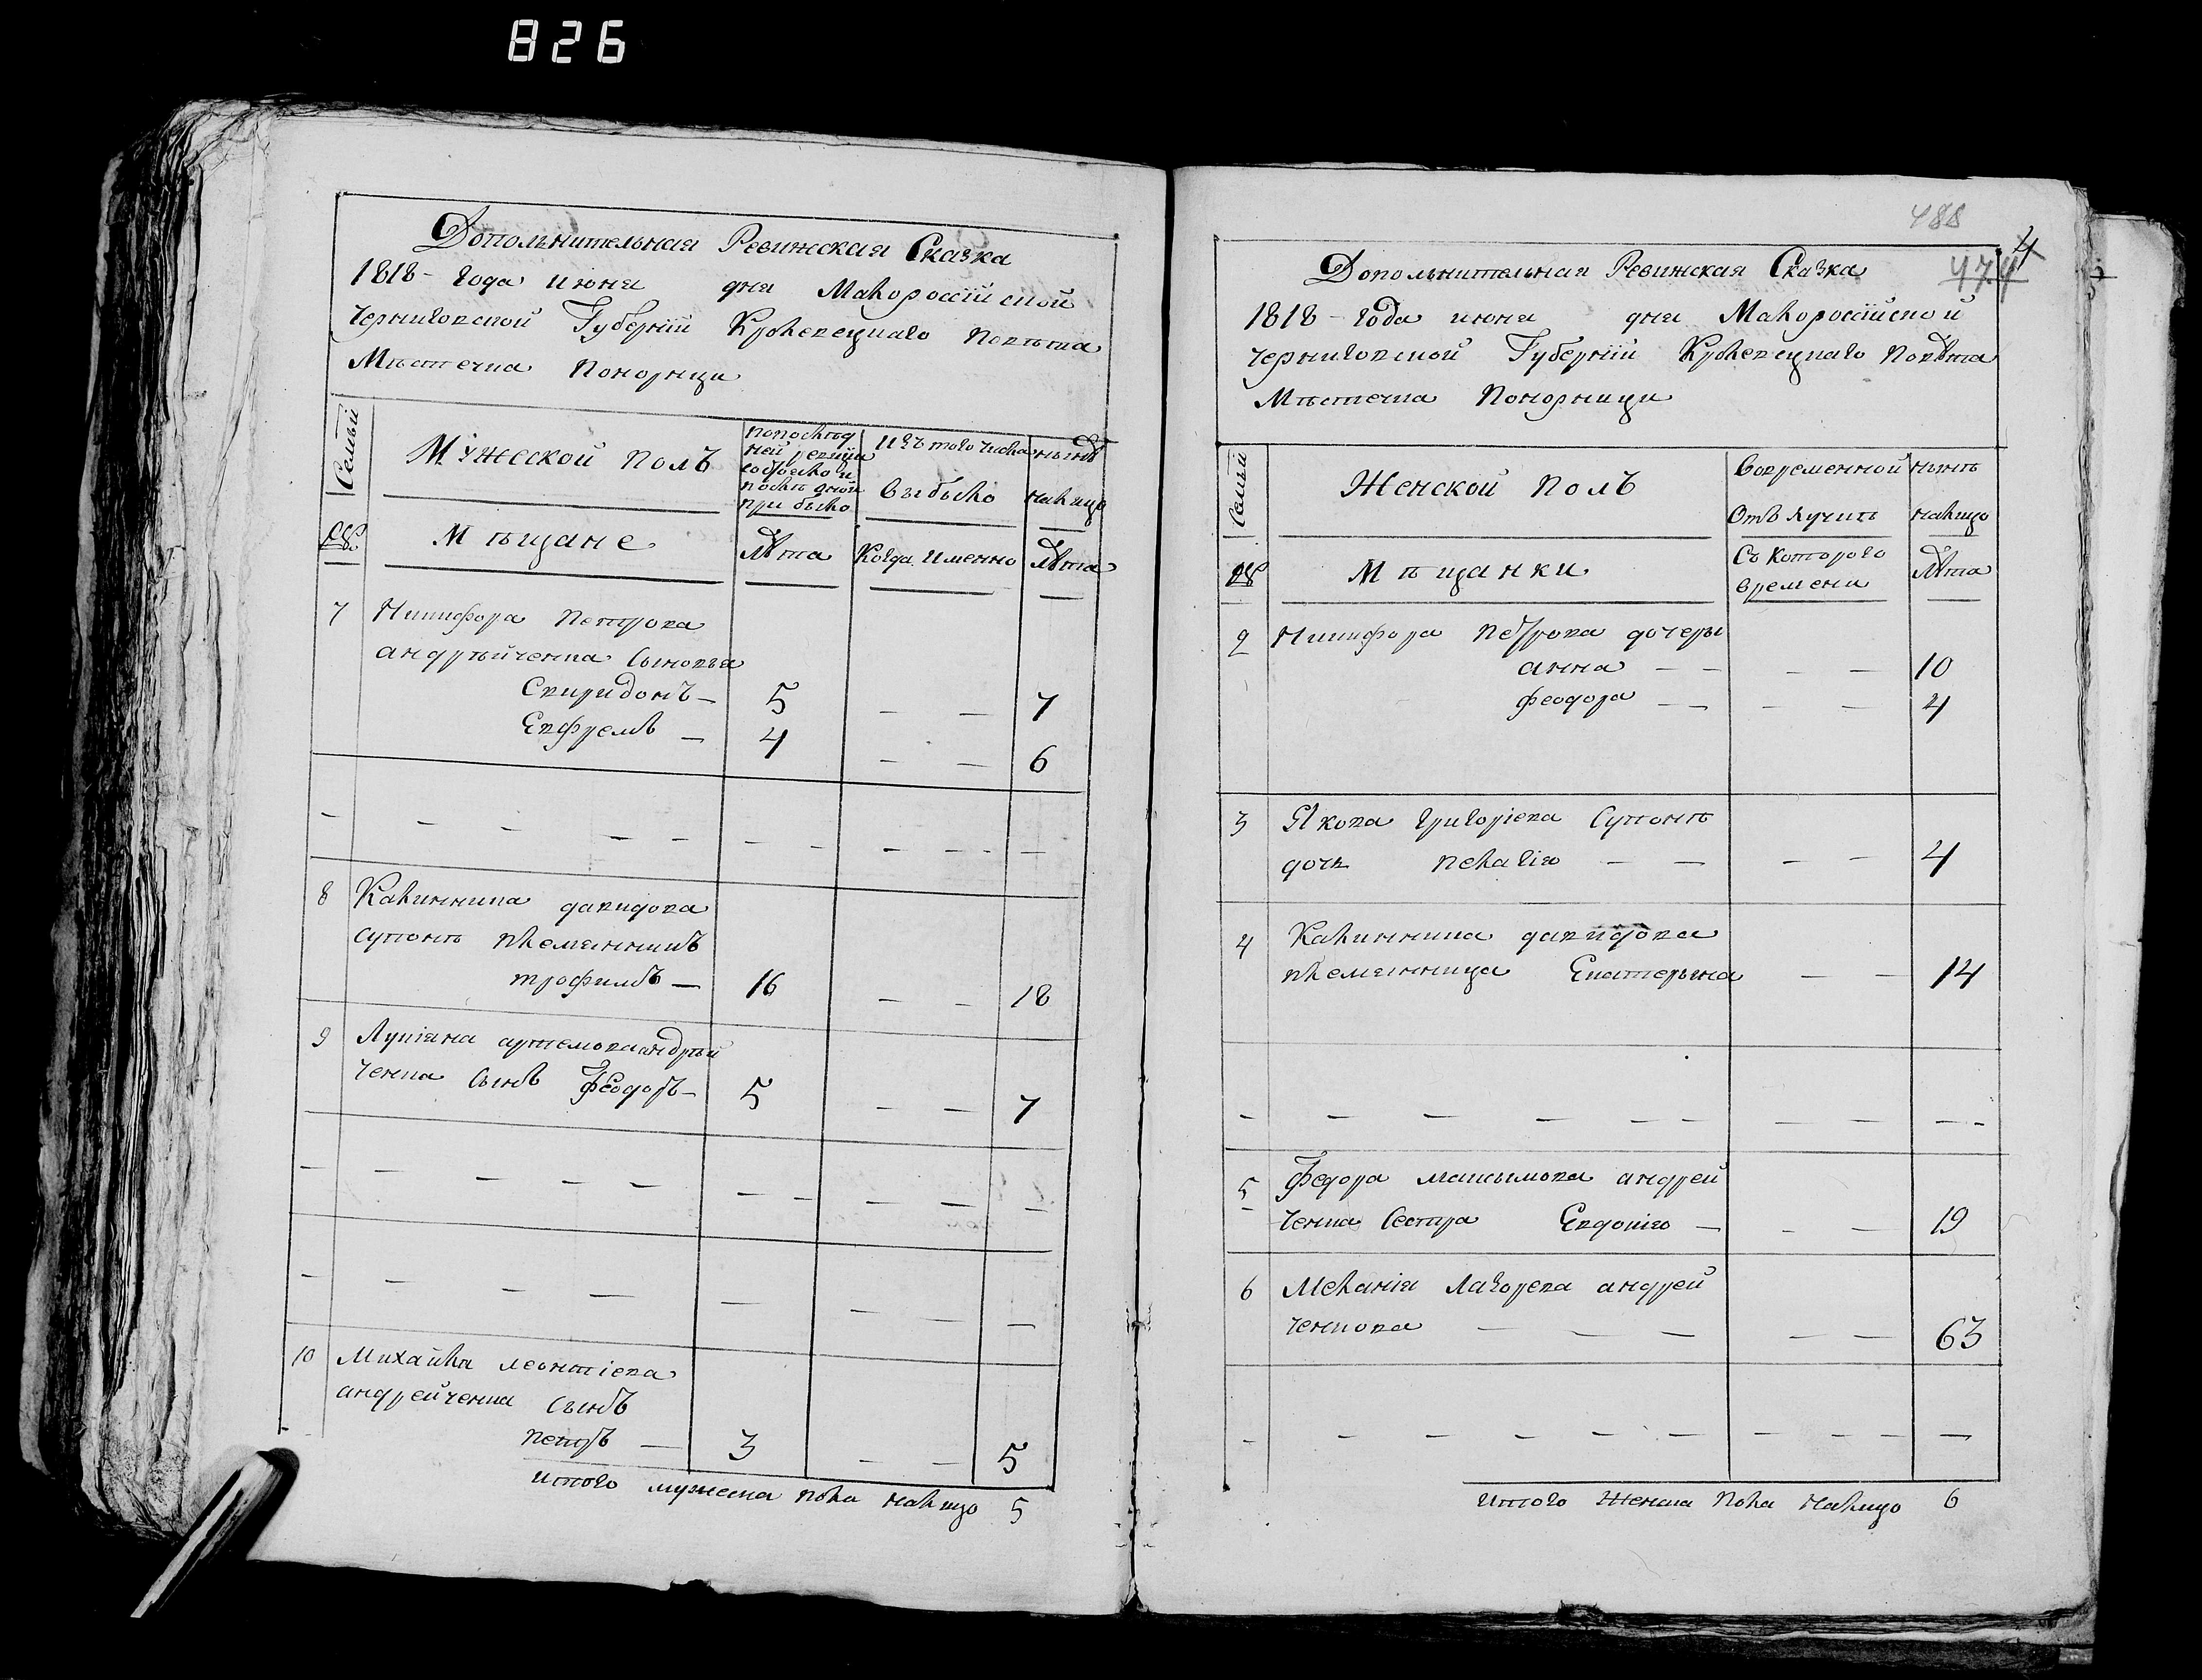 826
Дополнительная Ревижская Сказка
1818 - года июня дня Малороссiйской
Черниговской Губернiи Кролевецкаго Повѣта
Мѣстечка Понорницы
Семьи
Мужеской полъ
попослѣд
ней ревизiи
состояло и
послѣ оной
прибыло
Изъ того числа
выбыло
нынѣ
налицо
№
Мѣщане
Лѣта
Когда Именно
Лѣта
7 Никифора Петрова
андрѣйченка Сыновья
Спиридонъ — 5 — — 7
Евфремъ — 4 — — 6
8 Калинника давидова
супонѣ племянникъ
трофимъ — 16 — — 18
9 Лукiяна артемова андрѣй
ченка Сынъ Феодоръ — 5 — — 7
10 Михайла леонтiева
андрейченка Сынъ
петръ — 3 — — 5
итого мужеска пола налицо 5
488
4
474
Дополнительная Ревижская Сказка
1818 - года июня дня Малороссiйской
Черниговской Губернiи Кролевецкаго Повѣта
Мѣстечка Понорницы
Семьи
Женской полъ
Вовременной
Отълучкѣ
нынѣ
налицо
№
Мѣщанки
Съ Которого
времени
Лѣта
2 Никифора петрова дочеры
анна — — — — 10
феодора — — — — 4
3 Якова григорiева Супонѣ
дочь пелагiя — — — — 4
4 Калинника давидова
племянница Екатерына — — 14
5 Федора максымова андрей
ченка Сестра Евдокiя — — — 19
6 Меланiя Лазорева андрей
ченкова — — — — — 63
итого Женска пола налицо 6